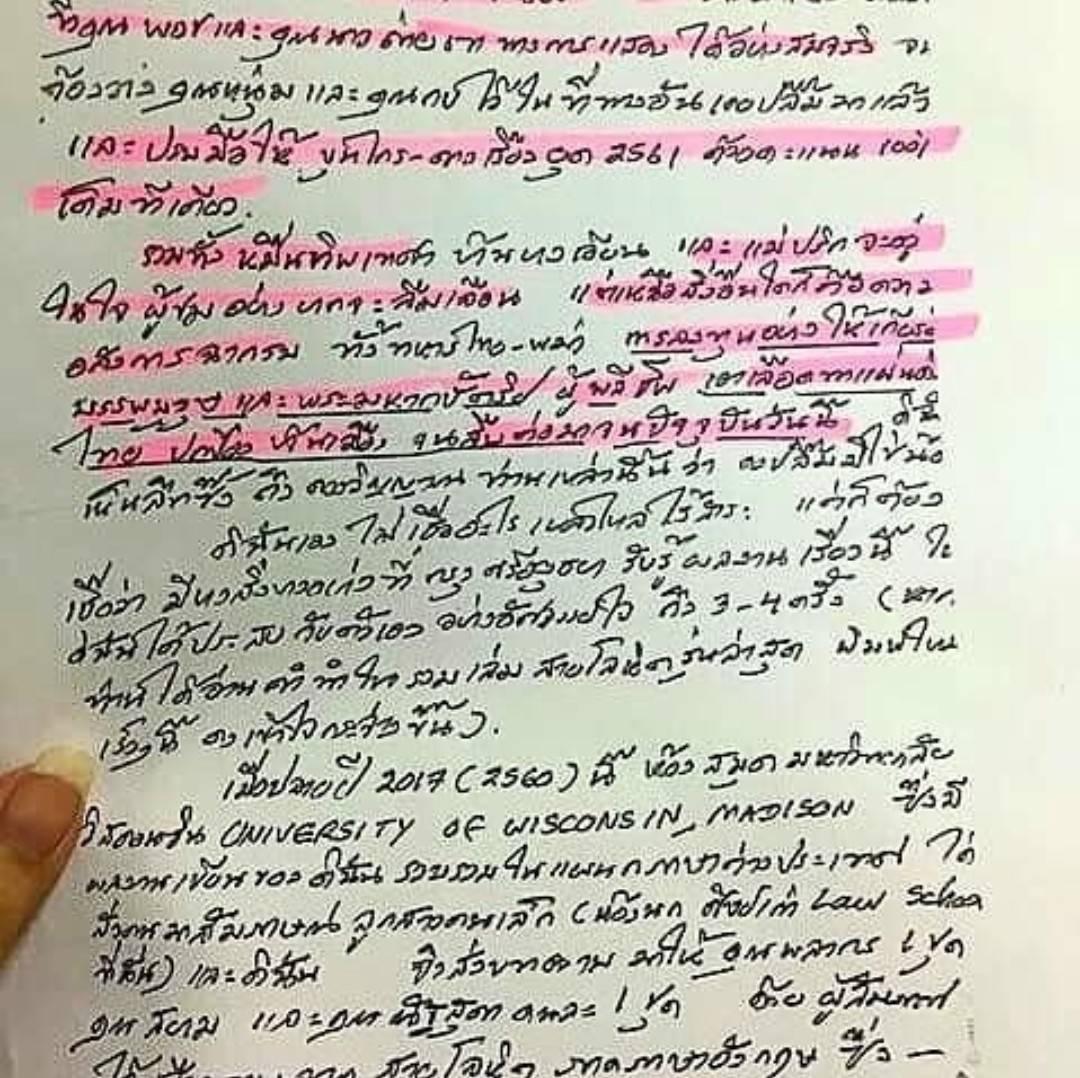 ที่คุณ พอช และ คุณนาว ถ่ายเท ทางการแสดง ได้อย่างสมจริง จะ
ต้องวาง คุณหนุ่ม และ คุณกบ ไว้ใน ที่ทางอัน เคยปลื้มมาแล้ว
และ ปรบมือให้ ขุนไกร-ดาวเรือง ยุค 2561 ด้วยคะแนน
เต็มทีเดียว.
รวมทั้ง หมื่นทิพเทศา และ แม่ปริก จะอยู่
ในใจ ผู้ชม อย่าง ยากจะลืมเลือน แต่เหนือสิ่งอื่นใดก็คือความ
อลังการฉากรบ ทั้งทหารไทย-พม่า การลงทุนอย่างให้เกียรติ
บรรพบุรุษ และพระมหากษัตริย์ ผู้ พลีชีพ เอาเลือดทาแผ่นดิน
ไทย ปกป้อง บ้านเมือง จนสืบต่อมาจนปัจจุบันวันนี้ ดิฉัน
เห็นลึกซึ้ง ถึง ดวงวิญญาณ ท่านเหล่านั้น ว่า คงปลื้มมิใช่น้อย
ดิฉันเอง ไม่เชื่ออะไร เหลวไหล ไร้สาระ แต่ก็ต้อง
เชื่อว่า มีบางสิ่งบางอย่างที่ กรุงศรีอยุธยา รับรู้ ผลงาน เรื่องนี้
ดิฉันได้ประสบ กับตัวเอง อย่างอัศจรรย์ใจ ถึง 3-4 ครั้ง (หาก
ท่านได้อ่าน คำนำใน รวมเล่ม สายโลหิต รุ่นล่าสุด พิมพ์ใหม่
เรื่องนี้ คงเข้าใจกระจ่างขึ้น).
เมื่อปลายปี 2017 (2560) นี้ ห้องสมุด มหาวิทยาลัย
วิสคอนซิน UNIVERSITY OF WISCONSIN, MADISON ซึ่งมี
ผลงานเขียนของ ดิฉัน รวบรวมในแผนกภาษาต่างประเทศ ได้
ส่งคนมาสัมภาษณ์ ลูกสาวคนเล็ก (น้องนก ศิษย์เก่า Law School
ที่นั่น) และ ดิฉัน จึงส่งบทความ มาให้ คุณพลากร 1 ชุด
คุณสยาม และ คุณ คนละ 1 ชุด ด้วย ผู้สัมภาษณ์
สายโลหิต ภาคภาษาอังกฤษ ซึ่ง —